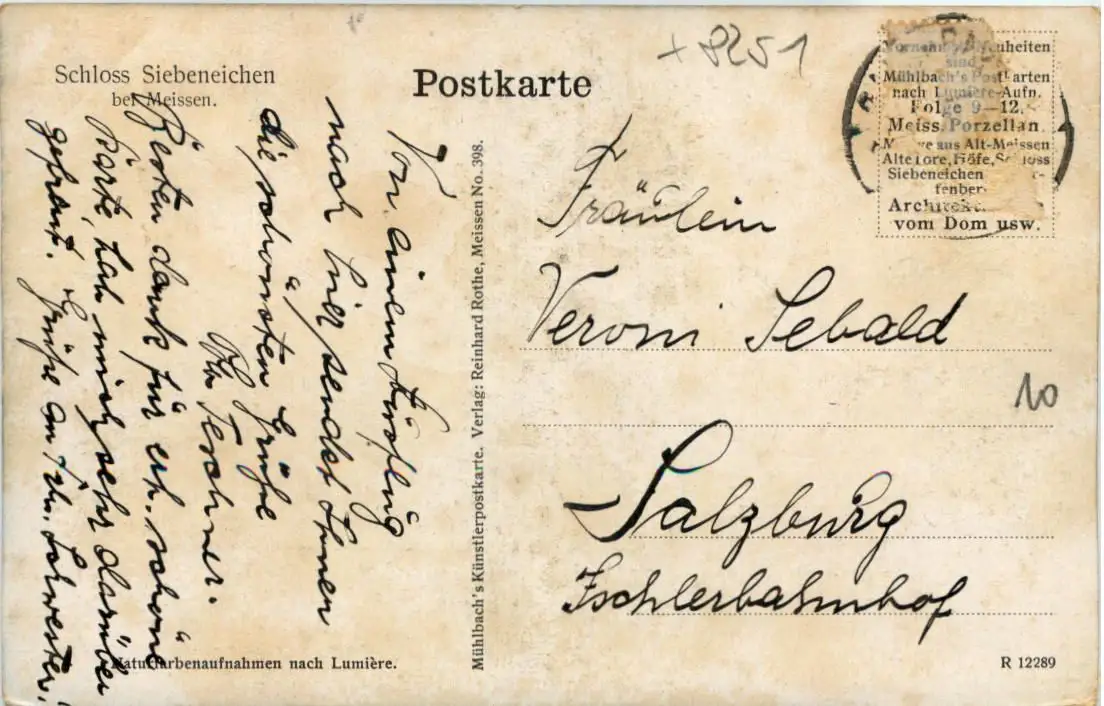 Schloss Siebeneichen
bei Meissen.
Postkarte
+ 8251
Vornehmste Neuheiten
sind
Mühlbach's Postkarten
nach Lumière-Aufn.
Folge 9—12.
Meiss. Porzellan
aus Alt-Meissen
Alte Tore, Höfe, Schloss
Siebeneichen
Architekt.
vom Dom usw.
Von einem Ausflug
nach hier sendet Ihnen
die schönsten Grüße
Ihr Teschner.
Besten Dank für erh. schöne
Karte, hab mich sehr darüber
gefreut. Grüße an Frl. Schwester.
Mühlbach's Künstlerpostkarte. Verlag: Reinhard Rothe, Meissen No. 398.
Fräulein
Veroni Sebald
10
Salzburg
Ischlerbahnhof
Naturfarbenaufnahmen nach Lumière.
R 12289